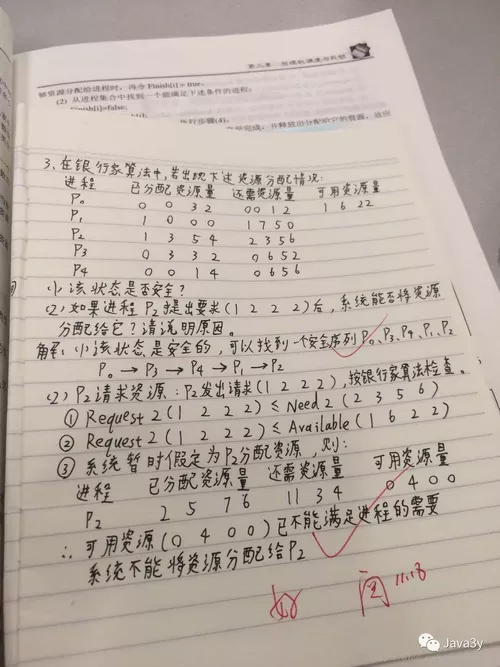 第三章 处理机调度与死锁
够资源分配给进程时，再令Finish[i]=true。
(2) 从进程集合中找到一个能满足下述条件的进程：
Finish[i]=false;
执行步骤(4)。
3、在银行家算法中，若出现下述资源分配情况：
进程 已分配资源量 还需资源量 可用资源量
P0 0 0 3 2 0 0 1 2 1 6 2 2
P1 1 0 0 0 1 7 5 0
P2 1 3 5 4 2 3 5 6
P3 0 3 3 2 0 6 5 2
P4 0 0 1 4 0 6 5 6
(1) 该状态是否安全？
(2) 如果进程P2提出要求(1 2 2 2)后，系统能否将资源
分配给它？请说明原因。
解：(1) 该状态是安全的，可以找到一个安全序列P0、P3、P4、P1、P2
P0 → P3 → P4 → P1 → P2
(2) P2请求资源：P2发出请求(1 2 2 2)，按银行家算法检查。
① Request2(1 2 2 2) ≤ Need2(2 3 5 6)
② Request2(1 2 2 2) ≤ Available(1 6 2 2)
③ 系统暂时假定为P2分配资源，则：
进程 已分配资源量 还需资源量 可用资源量
P2 2 5 7 6 1 1 3 4 0 4 0 0
∴ 可用资源(0 4 0 0)已不能满足进程的需要
系统不能将资源分配给P2
阅 11.18
Java3y